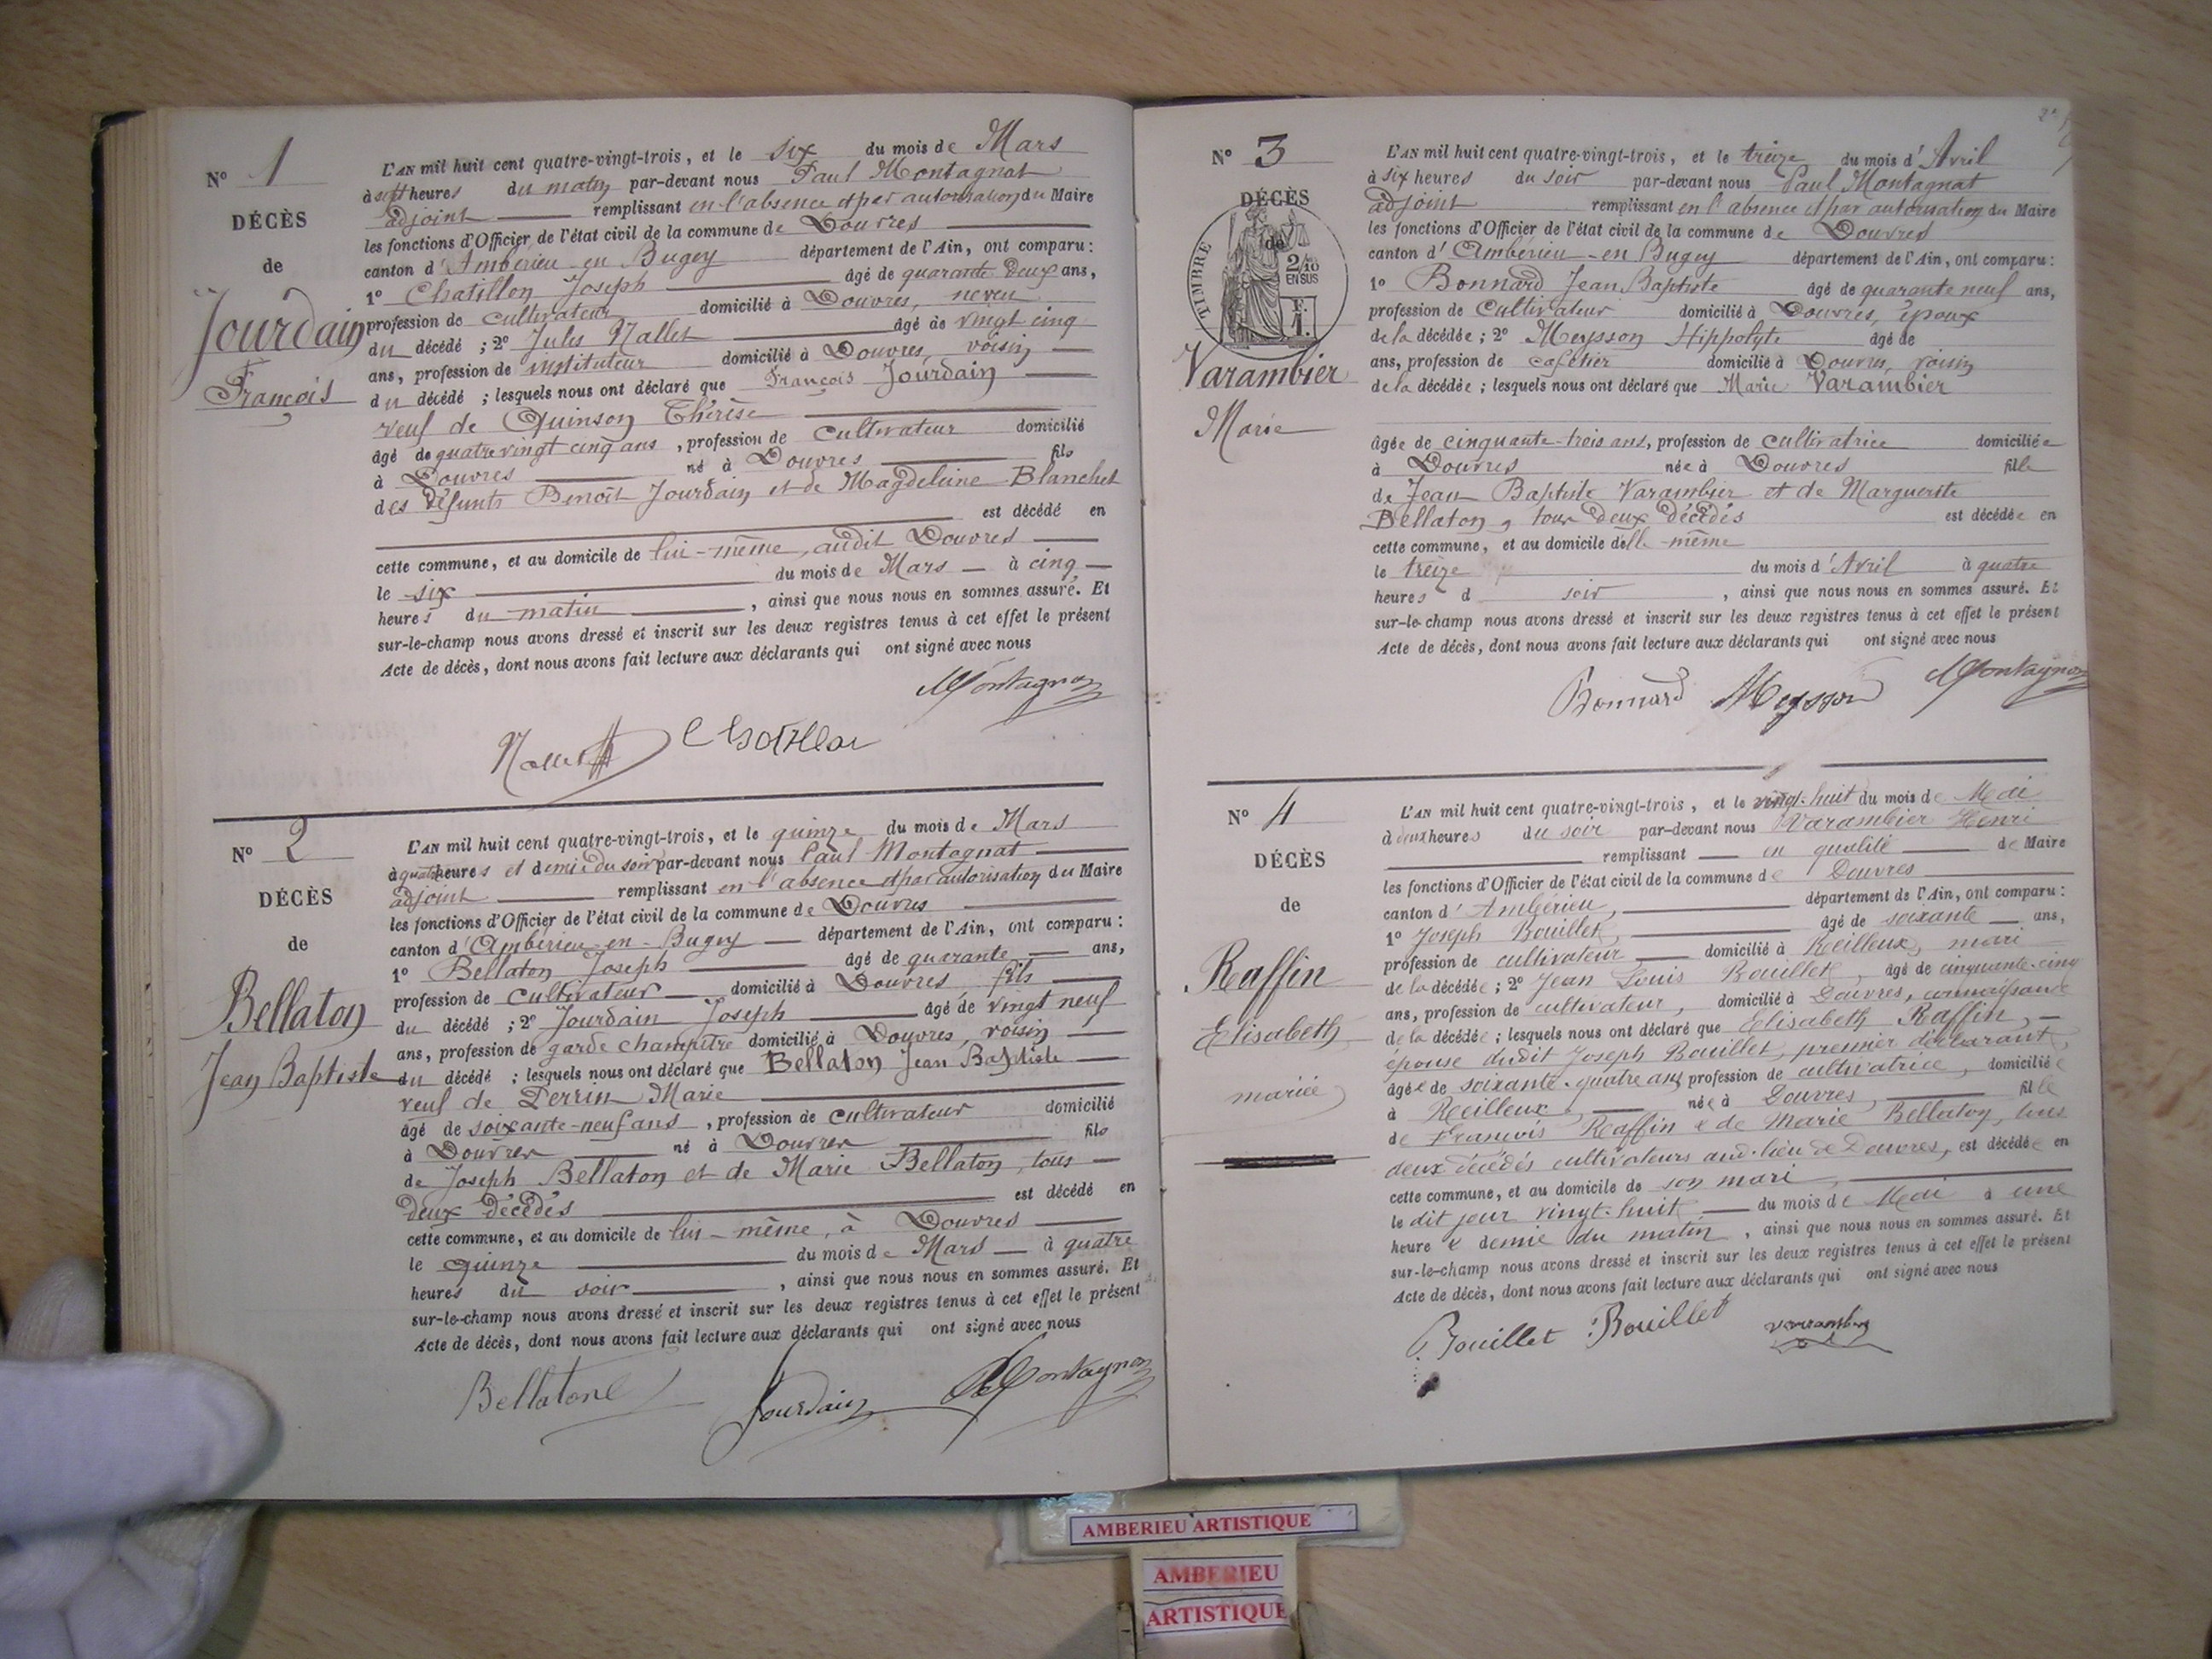 N° 1
DÉCÈS
de
Jourdain
François
L'AN mil huit cent quatre-vingt-trois, et le six du mois de Mars
à sept heures du matin par-devant nous Paul Montagnat
adjoint remplissant en l'absence et par autorisation du Maire
les fonctions d'Officier de l'état civil de la commune de Douvres
canton d'Ambérieu en Bugey département de l'Ain, ont comparu :
1° Chatillon Joseph âgé de quarante deux ans,
profession de cultivateur domicilié à Douvres, neveu
du décédé ; 2° Jules Nallet âgé de vingt cinq
ans, profession de instituteur domicilié à Douvres, voisin
du décédé ; lesquels nous ont déclaré que François Jourdain
veuf de Quinson Thérèse
âgé de quatre vingt cinq ans, profession de cultivateur domicilié
à Douvres né à Douvres fils
des défunts Benoît Jourdain et de Magdeleine Blanchet
est décédé en
cette commune, et au domicile de lui-même, audit Douvres
le six du mois de Mars à cinq
heures du matin, ainsi que nous nous en sommes assuré. Et
sur-le-champ nous avons dressé et inscrit sur les deux registres tenus à cet effet le présent
Acte de décès, dont nous avons fait lecture aux déclarants qui ont signé avec nous
Montagnat
Nallet Chatillon
N° 2
DÉCÈS
de
Bellaton
Jean Baptiste
L'AN mil huit cent quatre-vingt-trois, et le quinze du mois de Mars
à quatre heures et demie du soir par-devant nous Paul Montagnat
adjoint remplissant en l'absence et par autorisation du Maire
les fonctions d'Officier de l'état civil de la commune de Douvres
canton d'Ambérieu-en-Bugey département de l'Ain, ont comparu :
1° Bellaton Joseph âgé de quarante ans,
profession de cultivateur domicilié à Douvres fils
du décédé ; 2° Jourdain Joseph âgé de vingt neuf
ans, profession de garde champêtre domicilié à Douvres, voisin
du décédé ; lesquels nous ont déclaré que Bellaton Jean Baptiste
veuf de Perrin Marie
âgé de soixante-neuf ans, profession de cultivateur domicilié
à Douvres né à Douvres fils
de Joseph Bellaton et de Marie Bellaton, tous
deux décédés est décédé en
cette commune, et au domicile de lui-même, à Douvres
le quinze du mois de Mars à quatre
heures du soir, ainsi que nous nous en sommes assuré. Et
sur-le-champ nous avons dressé et inscrit sur les deux registres tenus à cet effet le présent
Acte de décès, dont nous avons fait lecture aux déclarants qui ont signé avec nous
Bellaton Jourdain Montagnat
N° 3
DÉCÈS
de
TIMBRE
2/10
EN SUS
F.
1.
Varambier
Marie
L'AN mil huit cent quatre-vingt-trois, et le treize du mois d'Avril
à six heures du soir par-devant nous Paul Montagnat
adjoint remplissant en l'absence et par autorisation du Maire
les fonctions d'Officier de l'état civil de la commune de Douvres
canton d'Ambérieu-en-Bugey département de l'Ain, ont comparu :
1° Bonnard Jean Baptiste âgé de quarante neuf ans,
profession de cultivateur domicilié à Douvres, époux
de la décédée ; 2° Meysson Hippolyte âgé de
ans, profession de cafetier domicilié à Douvres, voisin
de la décédée ; lesquels nous ont déclaré que Marie Varambier
âgée de cinquante-trois ans, profession de cultivatrice domiciliée
à Douvres née à Douvres fille
de Jean Baptiste Varambier et de Marguerite
Bellaton, tous deux décédés est décédée en
cette commune, et au domicile d'elle-même
le treize du mois d'Avril à quatre
heures d soir, ainsi que nous nous en sommes assuré. Et
sur-le-champ nous avons dressé et inscrit sur les deux registres tenus à cet effet le présent
Acte de décès, dont nous avons fait lecture aux déclarants qui ont signé avec nous
Bonnard Meysson Montagnat
N° 4
DÉCÈS
de
Raffin
Elisabeth
mariée
L'AN mil huit cent quatre-vingt-trois, et le vingt-huit du mois de Mai
à deux heures du soir par-devant nous Varambier Henri
remplissant en qualité de Maire
les fonctions d'Officier de l'état civil de la commune de Douvres
canton d'Ambérieu, département de l'Ain, ont comparu :
1° Joseph Bouillet, âgé de soixante ans,
profession de cultivateur domicilié à Reilleux, mari
de la décédée ; 2° Jean Louis Bouillet, âgé de cinquante-cinq
ans, profession de cultivateur, domicilié à Douvres, connaissance
de la décédée ; lesquels nous ont déclaré que Elisabeth Raffin,
épouse dudit Joseph Bouillet, premier déclarant,
âgée de soixante-quatre ans, profession de cultivatrice, domiciliée
à Reilleux, née à Douvres, fille
de François Raffin & de Marie Bellaton, tous
deux décédés cultivateurs aud. lieu de Douvres, est décédée en
cette commune, et au domicile de son mari,
le dit jour vingt-huit du mois de Mai à une
heure & demie du matin, ainsi que nous nous en sommes assuré. Et
sur-le-champ nous avons dressé et inscrit sur les deux registres tenus à cet effet le présent
Acte de décès, dont nous avons fait lecture aux déclarants qui ont signé avec nous
Bouillet Bouillet Varambier
AMBERIEU ARTISTIQUE
AMBERIEU
ARTISTIQUE